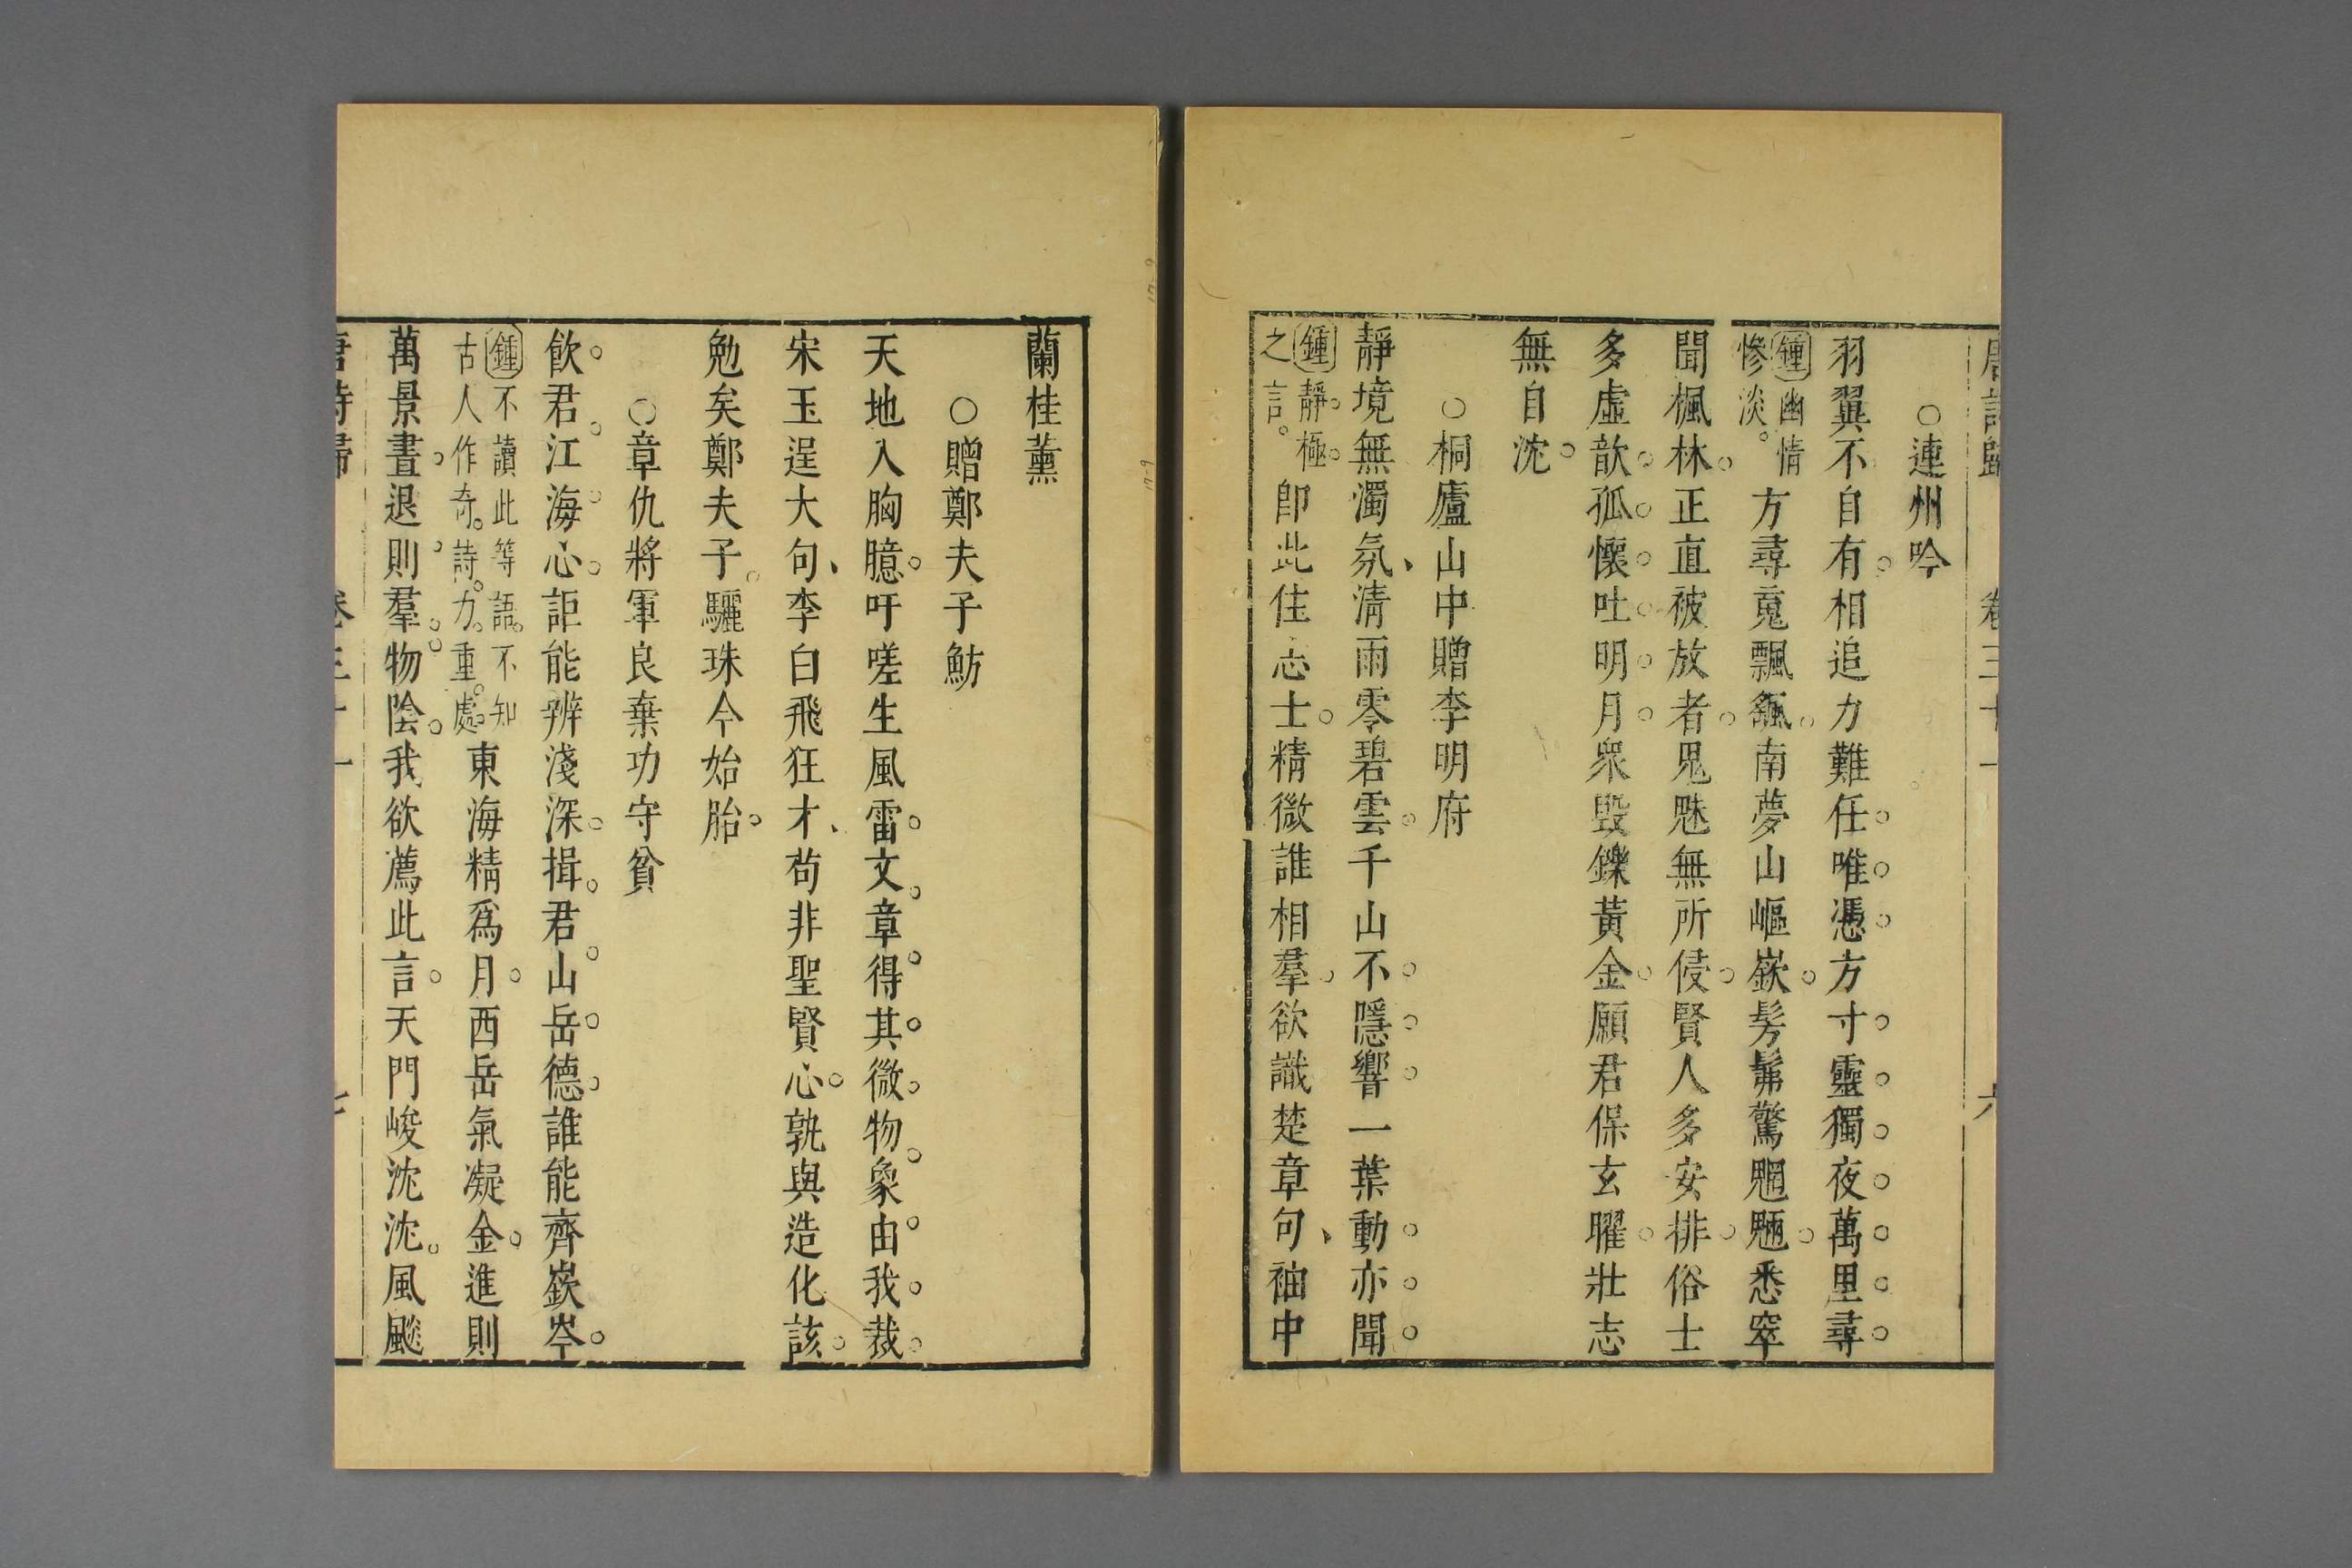 唐詩歸 卷三十一 六
○連州吟
羽翼不自有相追力難任唯憑方寸靈獨夜萬里尋
鍾幽情慘淡。方尋䰟飄颻南夢山嶇嶔髣髴驚魍魎悉窣
聞楓林正直被放者鬼魅無所侵賢人多安排俗士
多虛歆孤懷吐明月衆毀鑠黃金願君保玄曜壯志
無自沈
○桐廬山中贈李明府
靜境無濁氛、清雨零碧雲千山不隱響一葉動亦聞
鍾靜極之言。卽此佳志士精微誰相羣欲識楚章句、袖中
蘭桂薰
○贈鄭夫子魴
天地入胸臆吁嗟生風雷文章得其微物象由我裁
宋玉逞大句、李白飛狂才、苟非聖賢心孰與造化該
勉矣鄭夫子驪珠今始胎
○章仇將軍良棄功守貧
飲君江海心詎能辨淺深揖君山岳德誰能齊嶔岑
鍾不讀此等語不知古人作奇詩力重處東海精爲月西岳氣凝金進則
萬景晝退則羣物陰我欲薦此言天門峻沈沈風颷
唐詩歸 卷三十一 七